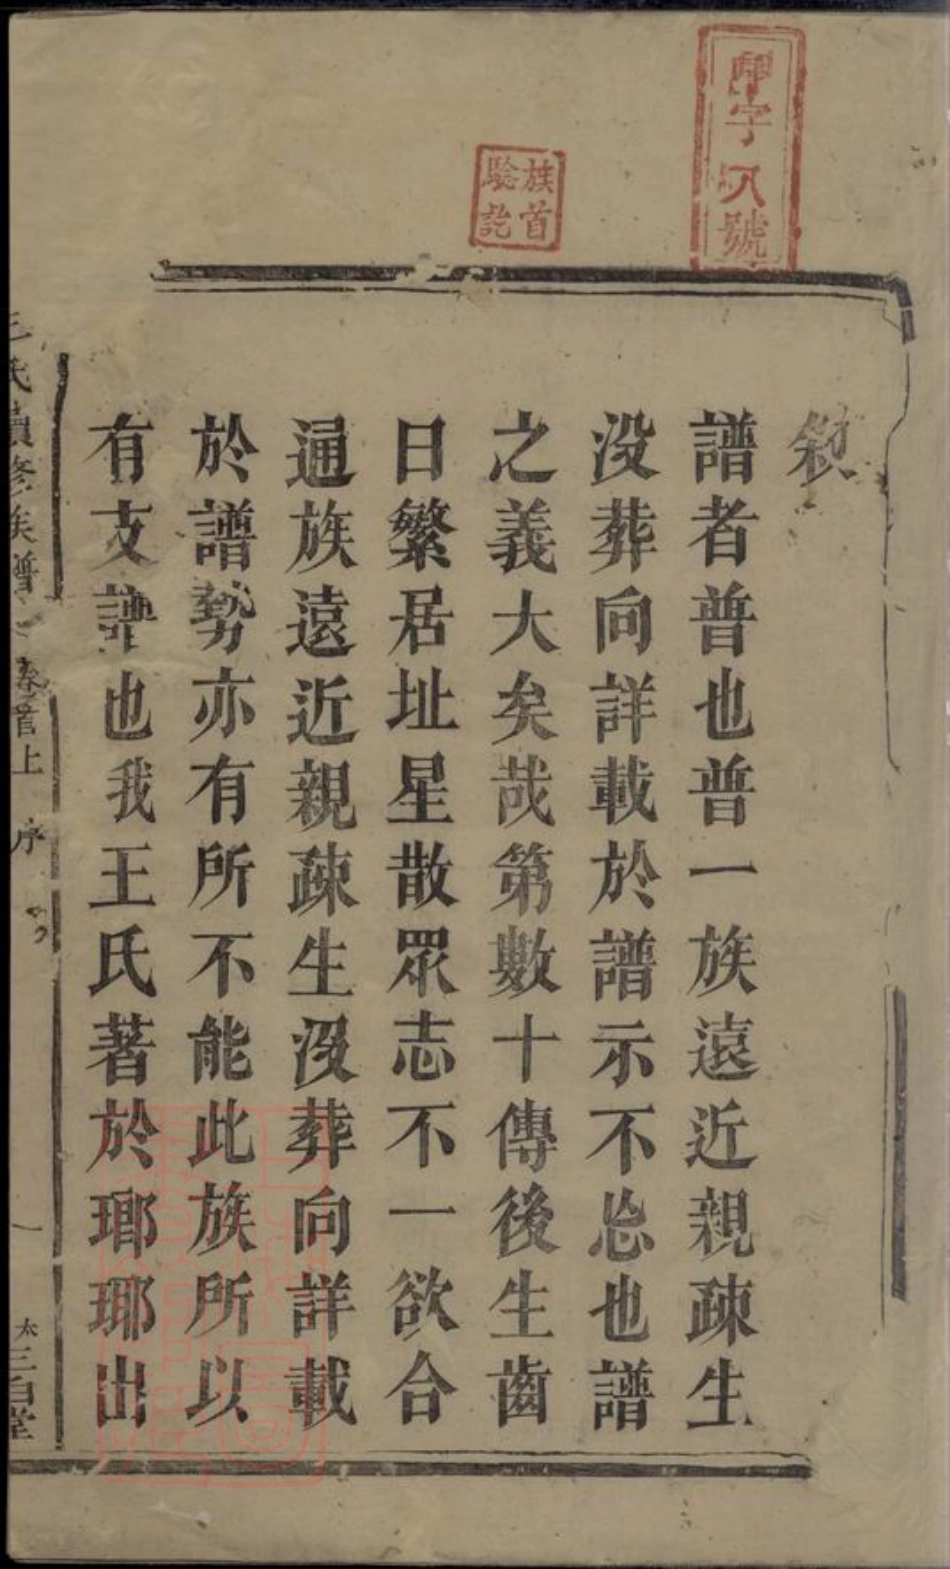 字
號
族首
驗訖
敘
譜者普也普一族遠近親疎生
沒葬向詳載於譜示不忘也譜
之義大矣哉第數十傳後生齒
日繁居址星散眾志不一欲合
通族遠近親疎生沒葬向詳載
於譜勢亦有所不能此族所以
有支譜也我王氏著於瑯琊出
氏續修族譜 卷首上 序 一 三白堂